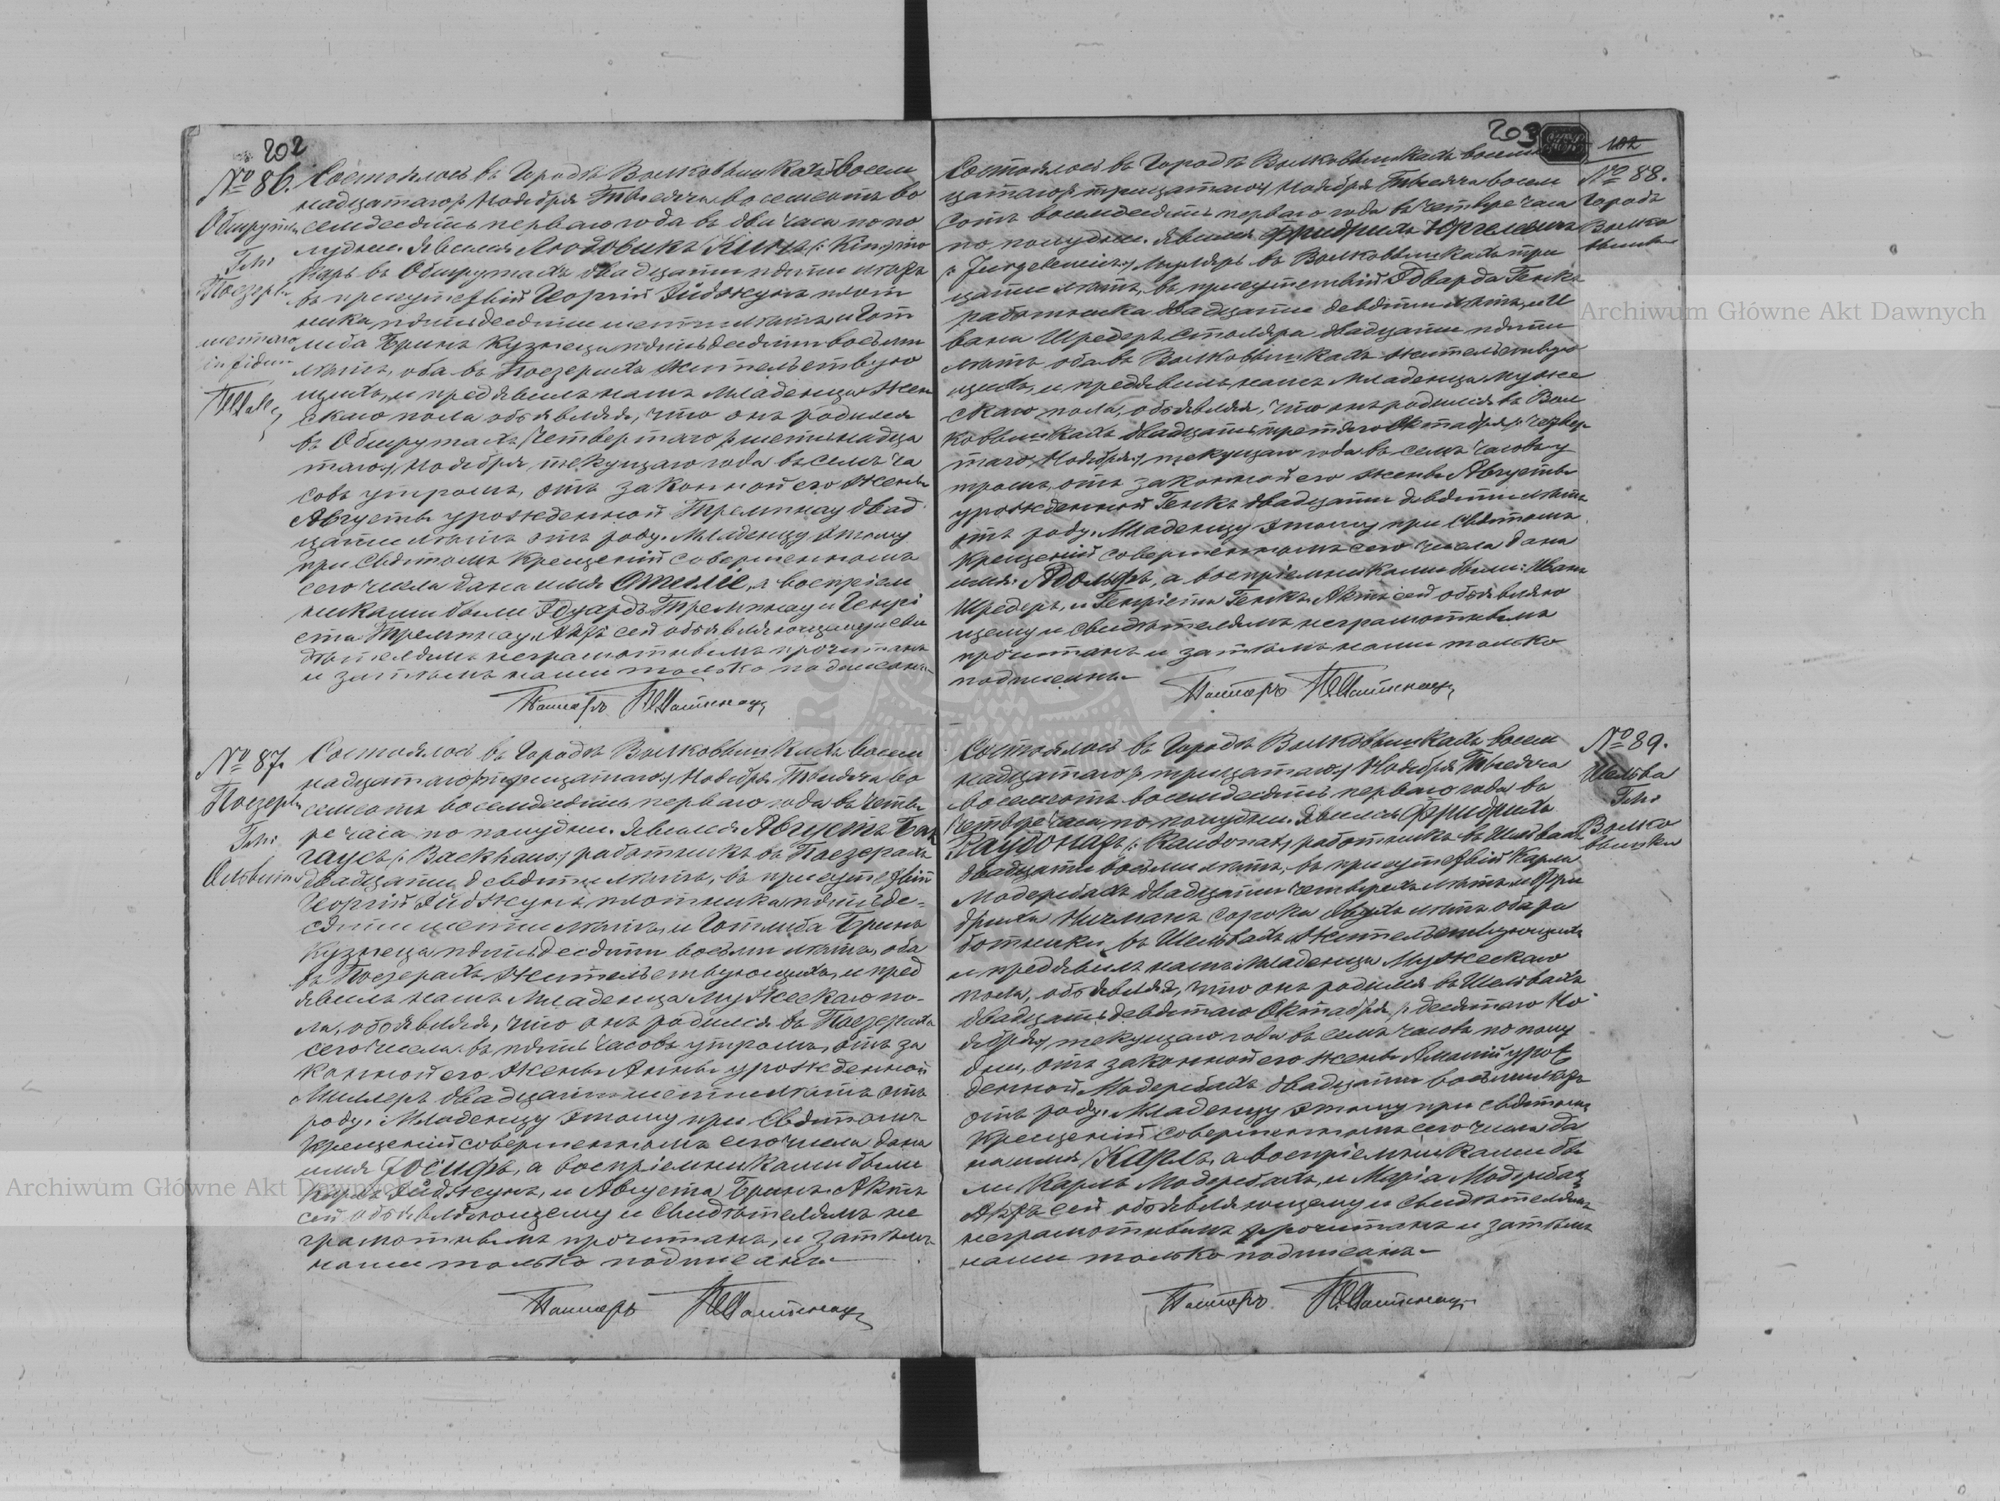 202
№ 86.
Обшруты
Гм:
Поезеры
Состоялось въ Городѣ Волковышкахъ восем
надцатаго /: тридцатаго :/ Ноября Тысяча восемьсотъ во
семдесятъ перваго года въ два часа попо
лудни. Явился Людовикъ Кинъ /: Kin :/ сто
ляръ въ Обшрутахъ двадцати пяти лѣтъ
въ присутствіи Георгія Яйджунъ плот
ника пятьдесяти шести лѣтъ, и Гот
либа Бринъ Кузнеца пятьдесяти восьми
лѣтъ, оба въ Поезерахъ жительствую
щихъ, и предъявилъ намъ Младенца Жен
скаго пола, объявляя, что онъ родился
въ Обшрутахъ, Четвертаго /: шестнадца
таго :/ Ноября, текущаго года въ семъ ча
совъ утромъ, отъ законной его Жены
Августы урожденной Тремпнау двад
цати лѣтъ отъ роду. Младенцу этому
при Святомъ Крещеніи совершенномъ
сего числа дано имя Отилія, а воспріем
никами были Эдуардъ Тремпнау и Генрі
ета Тремпнау. Актъ сей объявляющему и сви
дѣтелямъ неграмотнымъ прочитанъ
и затѣмъ нами только подписанъ.
Пасторъ
№ 87.
Поезеры
Гм:
Состоялось въ Городѣ Волковышкахъ восем
надцатаго /: тридцатаго :/ Ноября Тысяча во
семсотъ восемдесятъ перваго года въ четы
ре часа по полудни. Явился Августъ Бак
гаусъ /: Backhaus :/ работникъ въ Поезерахъ
двадцати девяти лѣтъ, въ присутствіи
Георгія Яйджунъ, плотника пятьде-
сяти шести лѣтъ, и Готлиба Бринъ
Кузнеца пятьдесяти восьми лѣтъ, оба
въ Поезерахъ жительствующихъ, и пред
явилъ намъ Младенца мужескаго по-
ла, объявляя, что онъ родился въ Поезерахъ
сего числа въ пять часовъ утромъ, отъ за
конной его Жены Анны урожденной
Миллеръ двадцати шести лѣтъ отъ
роду. Младенцу этому при Святомъ
Крещеніи совершенномъ сего числа дано
имя Іосифъ, а воспріемниками были
Карлъ Яйджунъ, и Августа Бринъ. Актъ
сей объявляющему и свидѣтелямъ не
грамотнымъ прочитанъ, и затѣмъ
нами только подписанъ.
Пасторъ
203
102
№ 88.
Городъ
Волко
вышки
Состоялось въ Городѣ Волковышкахъ восемнад
цатаго /: тридцатаго :/ Ноября Тысяча восем
сотъ восемдесятъ перваго года въ четыре часа
по полудни. Явился Фридрихъ Юргелевичъ
/: Jurgelewicz :/ въ Волковышкахъ три
цати лѣтъ, въ присутствіи Эдварда Генкъ
работника двадцати девяти лѣтъ, и И
вана Шредеръ столяра двадцати пяти
лѣтъ оба въ Волковышкахъ жительствую
щихъ, и предъявилъ намъ Младенца муже
скаго пола, объявляя, что онъ родился въ Вол
ковышкахъ двадцать третьяго Октября /: четвер
таго Ноября :/ текущаго года въ семъ часовъ у
тромъ, отъ законной его жены Августы
урожденной Генкъ двадцати девяти лѣтъ
отъ роду. Младенцу этому при Святомъ
Крещеніи совершенномъ сего числа дано
имя: Адольфъ, а воспріемниками были: Иванъ
Шредеръ, и Генріета Генкъ. Актъ сей объявляю
щему и свидѣтелямъ неграмотнымъ
прочитанъ и затѣмъ нами только
подписанъ.
Пасторъ
№ 89.
Шельвы
Гм:
Волко
вышки
Состоялось въ Городѣ Волковышкахъ восем
надцатаго /: тридцатаго :/ Ноября Тысяча
восемсотъ восемдесятъ перваго года въ
четыре часа по полудни. Явился Фридрихъ
Каудонатъ /: Kaudonat :/ работникъ въ Шельвахъ
двадцати восьми лѣтъ, въ присутствіи Карла
Модербахъ двадцати четырехъ лѣтъ, и Фри
дриха Ничманъ сорока двухъ лѣтъ оба ра
ботники въ Шельвахъ жительствующихъ
и предъявилъ намъ Младенца Мужескаго
пола, объявляя, что онъ родился въ Шельвахъ
двадцать девятаго Октября /: десятаго Но
ября :/ текущаго года въ семъ часовъ по полу
дни, отъ законной его жены Амаліи урож
денной Модербахъ двадцати восьми лѣтъ
отъ роду. Младенцу этому при святомъ
Крещеніи совершенномъ сего числа да
но имя Карлъ, а воспріемниками бы
ли Карлъ Модербахъ, и Марія Модербахъ
Актъ сей объявляющему и свидѣтелямъ
неграмотнымъ прочитанъ и затѣмъ
нами только подписанъ.
Пасторъ
Archiwum Główne Akt Dawnych
Archiwum Główne Akt Dawnych